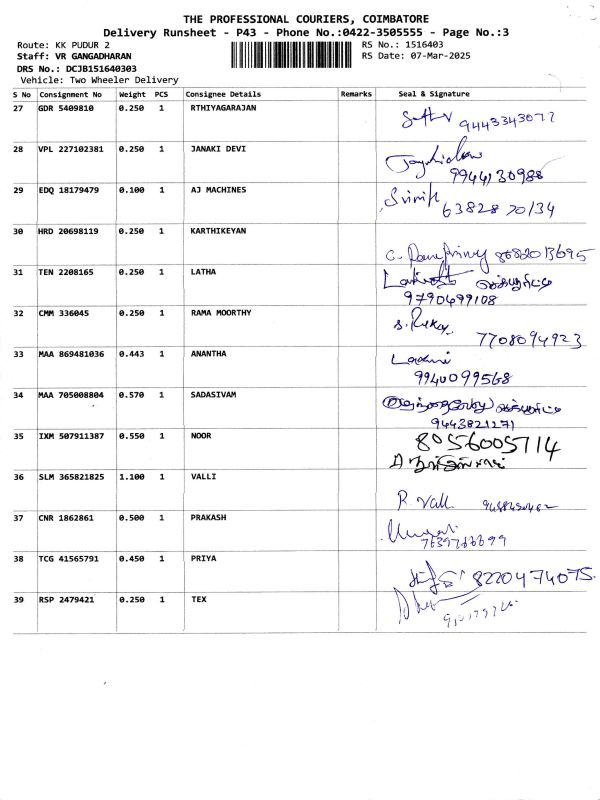 THE PROFESSIONAL COURIERS, COIMBATORE
Delivery Runsheet - P43 - Phone No.:0422-3505555 - Page No.:3
Route: KK PUDUR 2 RS No.: 1516403
Staff: VR GANGADHARAN RS Date: 07-Mar-2025
DRS No.: DCJB151640303
Vehicle: Two Wheeler Delivery
S No Consignment No Weight PCS Consignee Details Remarks Seal & Signature
27 GDR 5409810 0.250 1 RTHIYAGARAJAN
28 VPL 227102381 0.250 1 JANAKI DEVI
9944130988
29 EDQ 18179479 0.100 1 AJ MACHINES
63828 70134
30 HRD 20698119 0.250 1 KARTHIKEYAN
31 TEN 2208165 0.250 1 LATHA
9790499108
32 CMM 336045 0.250 1 RAMA MOORTHY
7708094923
33 MAA 869481036 0.443 1 ANANTHA
9940099568
34 MAA 705008804 0.570 1 SADASIVAM
9443821271
35 IXM 507911387 0.550 1 NOOR 8056005714
36 SLM 365821825 1.100 1 VALLI
37 CNR 1862861 0.500 1 PRAKASH
38 TCG 41565791 0.450 1 PRIYA
8220474075
39 RSP 2479421 0.250 1 TEX